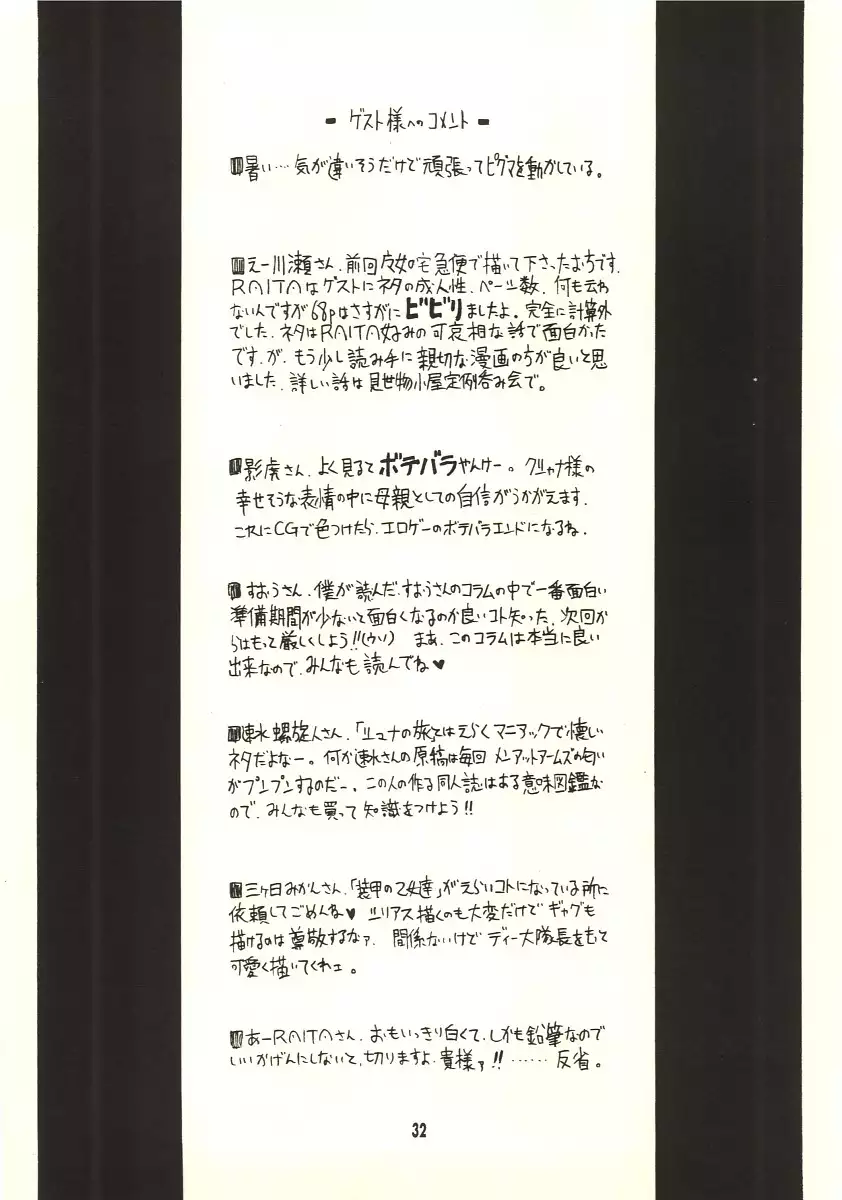 - ゲスト様へのコメント -
暑い…気が違いそうだけで頑張ってピグマを動かしている。
えー川瀬さん、前回 宅急便で描いて下さったまちです。
RAITAはゲストにネタの成人性、ページ数、何も云わ
ないんですが68pはさすがにビビりましたよ。完全に計算外
でした。ネタはRAITA好みの可哀相な話で面白かった
ですが、もう少し読み手に親切な漫画の方が良いと思
いました。詳しい話は見世物小屋定例呑み会で。
影虎さん、よく見るてボテバラやんけー。クシャナ様の
幸せそうな表情の中に母親としての自信がうかがえます。
これにCGで色つけたら、エロゲーのボテバラエンドになるね。
すおうさん、僕が読んだ、すおうさんのコラムの中で一番面白い
準備期間が少ないと面白くなるのが良いコト知った、次回か
らはもって厳しくしよう!!(ウソ) まあ、このコラムは本当に良い
出来なので、みんなも読んでね♥
速水螺旋人さん、「シュナの旅」とはえらくマニアックで懐しい
ネタだよなー。何か速水さんの原稿は毎回 メンアットアームズの匂い
がプンプンするのだー。この人の作る同人誌はある意味図鑑な
ので、みんなも買って知識をつけよう!!
三ヶ日みかんさん、「装甲の乙女達」がえらいコトになっている所に
依頼してごめんね♥ シリアス描くのも大変だけでギャグも
描けるのは尊敬するなァ、関係ないけで ディー大隊長をもて
可愛く描いてくれェ。
あーRAITAさん、おもいっきり白くて、しかも鉛筆なので
いいかげんにしないと、切りますよ、貴様ァ!!……反省。
32